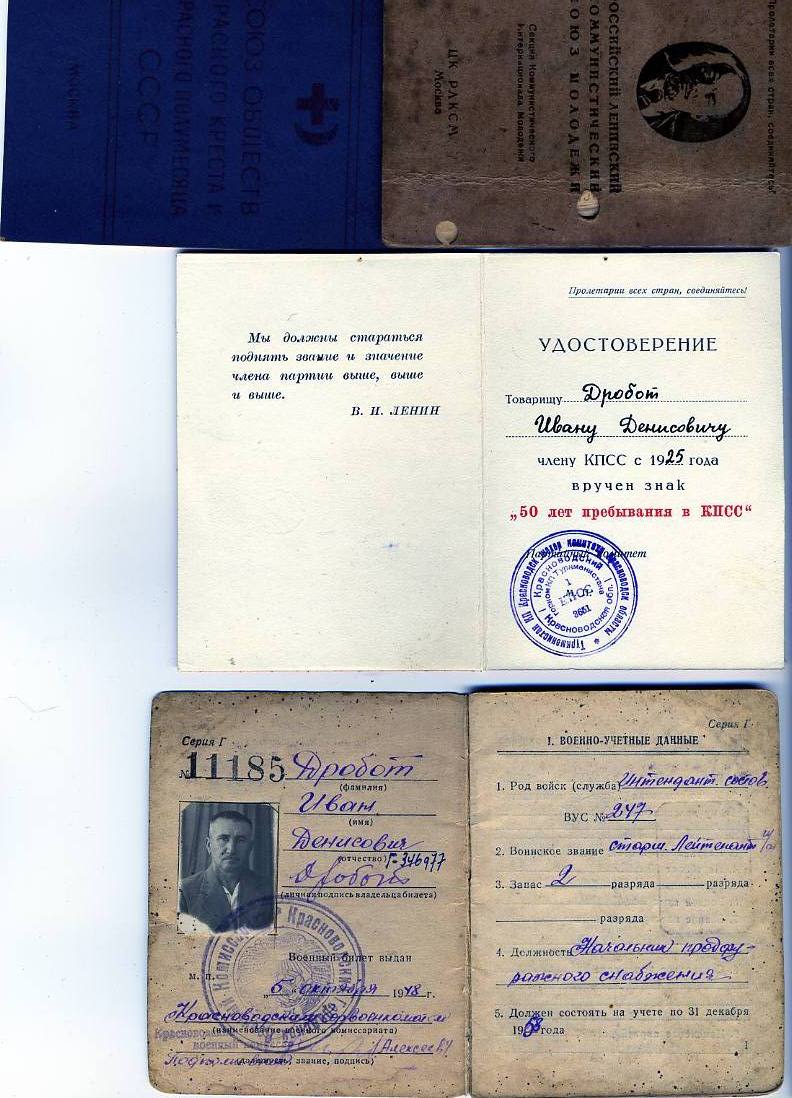 СОЮЗ ОБЩЕСТВ
КРАСНОГО КРЕСТА И
КРАСНОГО ПОЛУМЕСЯЦА
СССР
МОСКВА
Пролетарии всех стран, соединяйтесь!
РОССИЙСКИЙ ЛЕНИНСКИЙ
КОММУНИСТИЧЕСКИЙ
СОЮЗ МОЛОДЕЖИ
Секция Коммунистического
Интернационала Молодежи
ЦК РЛКСМ
Москва
Мы должны стараться
поднять звание и значение
члена партии выше, выше
и выше.
В. И. ЛЕНИН
Пролетарии всех стран, соединяйтесь!
УДОСТОВЕРЕНИЕ
Товарищу Дробот
Ивану Денисовичу
члену КПСС с 1925 года
вручен знак
„50 лет пребывания в КПСС“
Партийный комитет
Красноводский
Горком КП Туркменистана
Красноводской обл.
Серия Г
№ 11185 Дробот
(фамилия)
Иван
(имя)
Денисович
(отчество) Г-346977
Дробот
(личная подпись владельца билета)
Военный билет выдан
м. п.
„5“ октября 1948 г.
Красноводским горвоенкоматом
(наименование военного комиссариата)
военный комиссар
(должность, звание, подпись)
Серия Г
I. ВОЕННО-УЧЕТНЫЕ ДАННЫЕ
1. Род войск (служба) Интендант. состав
ВУС № 247
2. Воинское звание старш. Лейтенант и/с
3. Запас 2 разряда разряда
разряда
4. Должность Начальник продфу-
ражного снабжения
5. Должен состоять на учете по 31 декабря
19 года
1